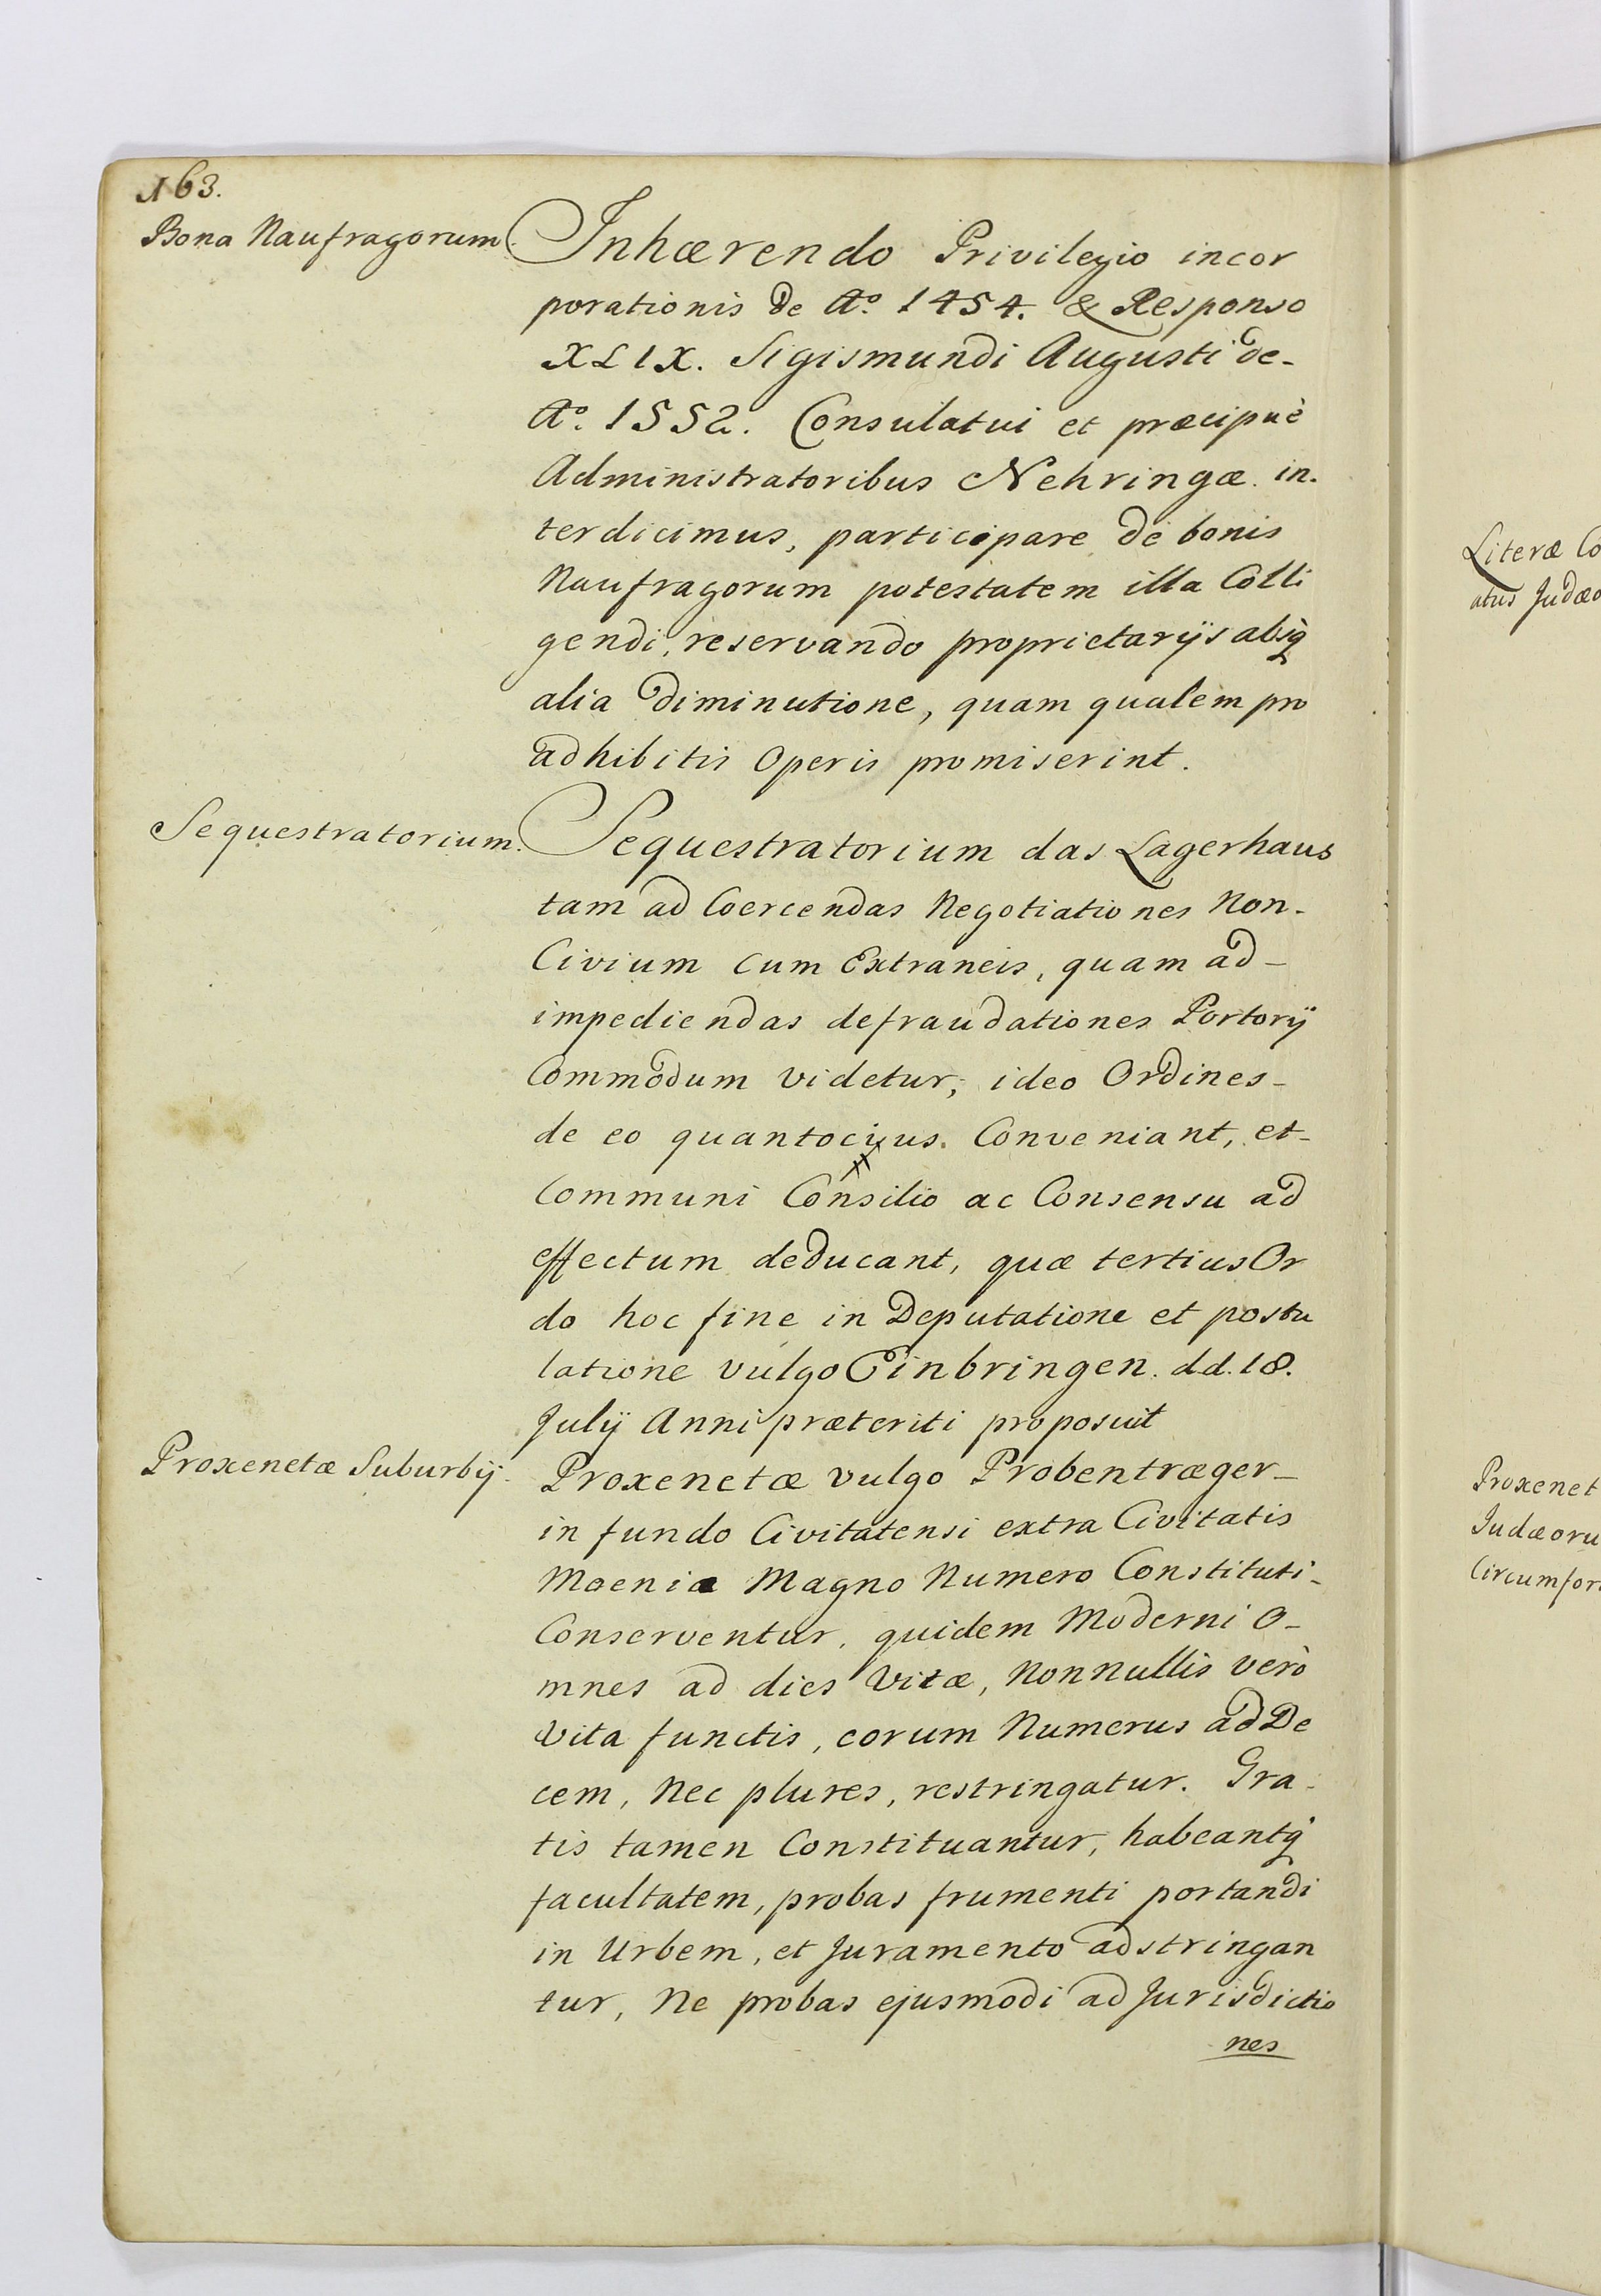 163.
Bona Naufragorum.
Inhærendo Privilegio incor
porationis de Aº. 1454. & Responso
XLIX. Sigismundi Augusti de-
Aº. 1552. Consulatui et præcipuè
Administratoribus Nehringæ in-
terdicimus, participare de bonis
Naufragorum potestatem illa Colli
gendi, reservando proprietarijs absq
alia diminutione, quam qualem pro
adhibitis Operis promiserint.
Sequestratorium.
Sequestratorium das Lagerhaus
tam ad Coercendas Negotiationes Non-
Civium cum Extraneis, quam ad-
impediendas defraudationes Portorij
Commodum videtur; ideo Ordines-
de eo quantocijus Conveniant, et-
Communi Consilio ac Consensu ad
effectum deducant, quæ tertius Or
do hoc fine in Deputatione et postu
latione vulgo Einbringen. d.d. 18.
Julij Anni præteriti proposuit
Proxenetæ Suburbij.
Proxenetæ vulgo Probentræger-
in fundo Civitatensi extra Civitatis
Moenia Magno Numero Constituti-
Conserventur, quidem Moderni O-
mnes ad dies Vitæ, Nonnullis verò
Vita functis, eorum Numerus ad De
cem, Nec plures, restringatur. Gra-
tis tamen Constituantur, habeantq
facultatem, probas frumenti portandi
in Urbem, et Juramento adstringan
tur, Ne probas ejusmodi ad Jurisdictio
nes
Literæ Co
atus Judæo
Proxenet
Judæoru
Circumfor